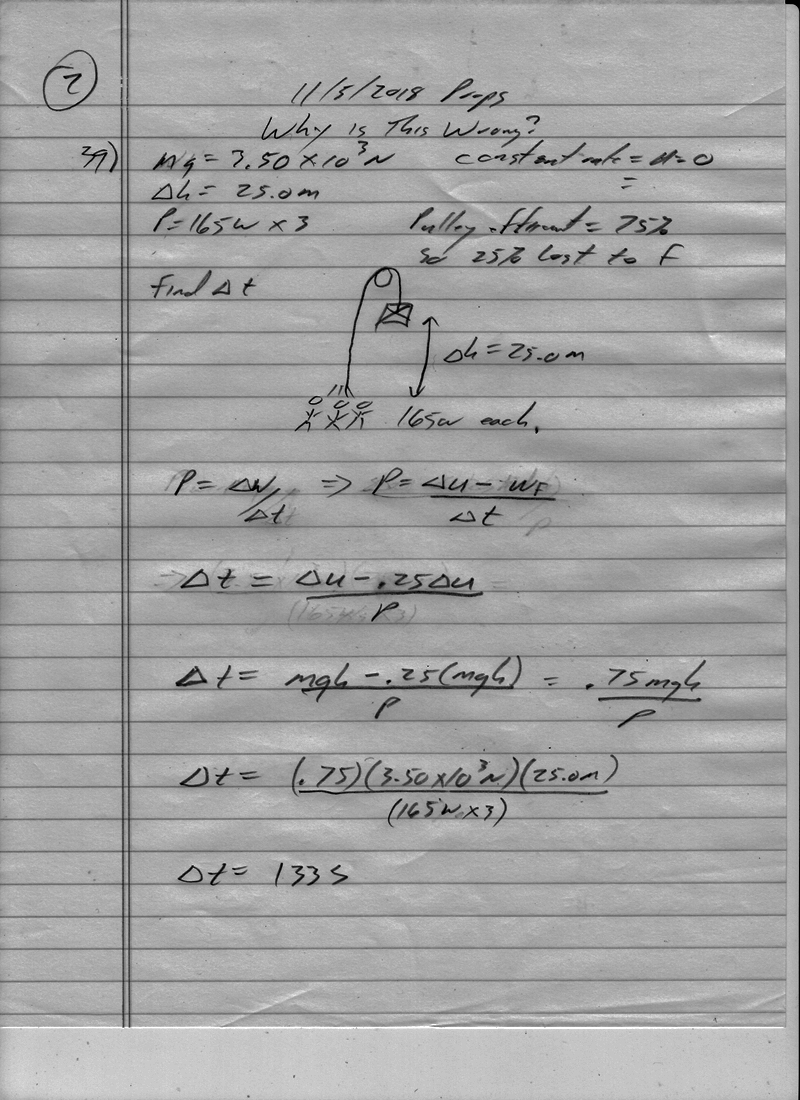 2
11/5/2018 Props
Why Is This Wrong?
mg = 3.50 x10³ N constant rate = a=0
=
Δh = 25.0m
P = 165w x 3 Pulley efficient = 75%
so 25% lost to F
find Δt
Δh = 25.0m
165w each.
P = ΔW/Δt ⇒ P = (Δu - WF)/Δt
Δt = (Δu - .25Δu)/P
Δt = (mgh - .25(mgh))/P = .75mgh/P
Δt = (.75)(3.50x10³N)(25.0m)/(165w x3)
Δt = 133 s